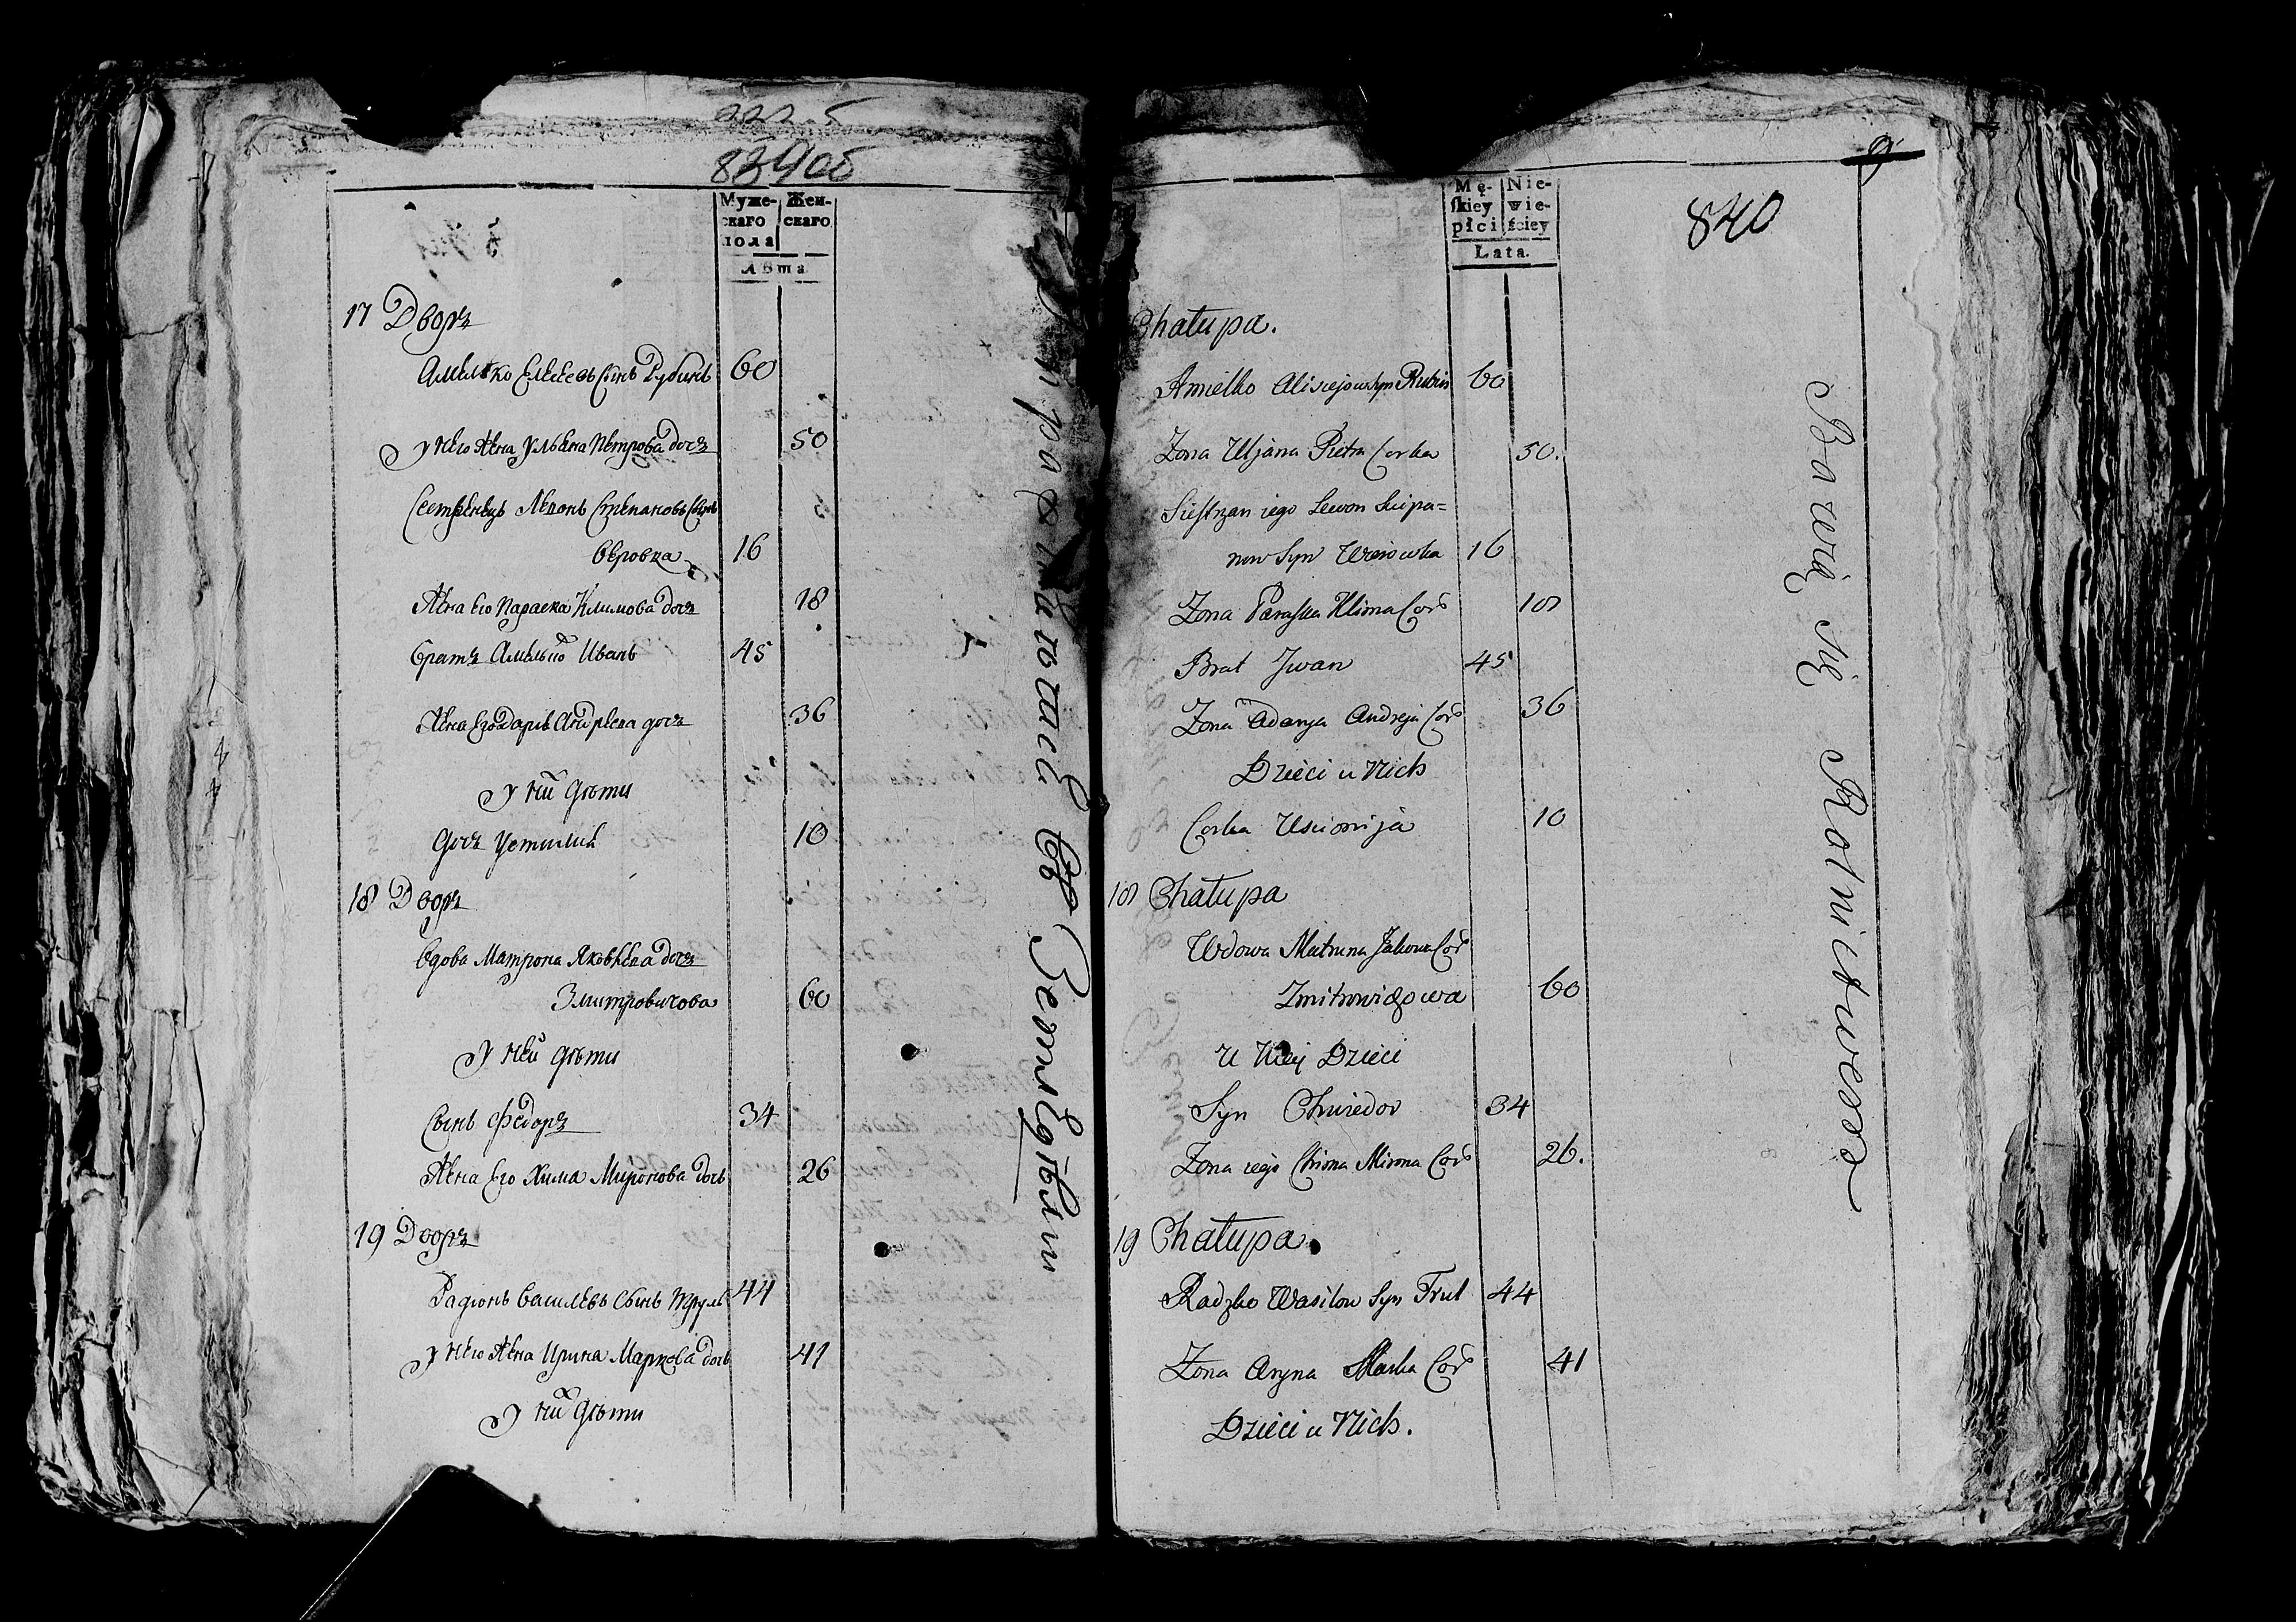 83906
Муже- Жен-
скаго скаго
пола
Лѣта
17 Дворъ
Амелко Елесеевъ сынъ Рубинъ 60
у него жена Ульяна Петрова дочь 50
Сестренецъ Левонъ Степановъ сынъ
Веровка 16
Жена его Параска Климова дочь 18
братъ Амелько Иванъ 45
Жена его Дарья Андреева дочь 36
у них дѣти
дочь Устинья 10
18 Дворъ
вдова Матрона Яковлева дочь
Змитровичова 60
у ней дѣти
Сынъ Федоръ 34
Жена его Хима Миронова дочь 26
19 Дворъ
Радионъ Василевъ сынъ Труль 44
у него жена Ирина Маркова дочь 41
у них дѣти
въ Земледѣлии
9
840
Mę- Nie-
skiey wie-
płci ściey
Lata.
Chałupa.
Amielko Alisiejow syn Rubin 60
Zona Uljana Pietra Corka 50.
Siestrzan iego Lewon Sciepa=
now Syn Werowka 16
Zona Paraska Klima Cor 18
Brat Jwan 45
Zona Adarya Andreja Cor 36
Dzieci u Nich
Corka Uscionija 10
18 Chałupa
Wdowa Matruna Jakowa Cor
Zmitrowiczowa 60
U Niey Dzieci
Syn Chwiedor 34
Zona iego Chima Mirona Cor 26.
19 Chałupa.
Radzko Wasilow Syn Trul 44
Zona Aryna Marka Cor 41
Dzieci u Nich.
Bawią się Rolnictwem